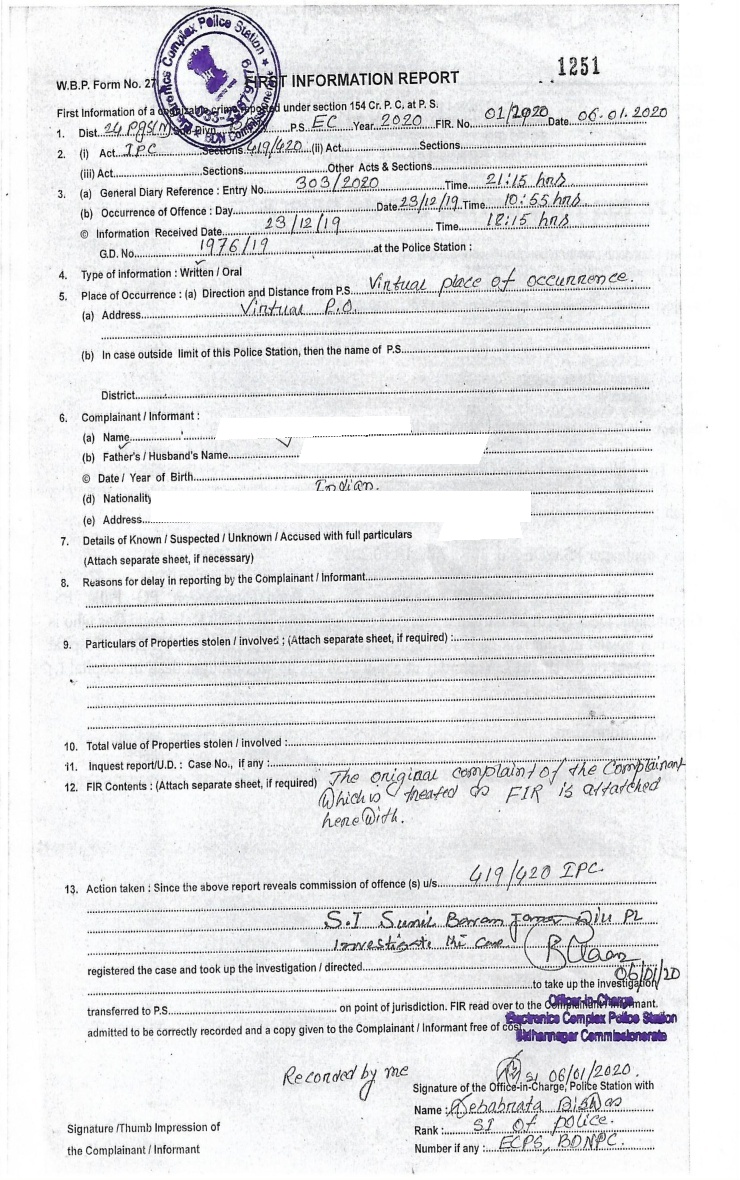 Electronics Complex Police Station
W.B.P. Form No. 27 FIRST INFORMATION REPORT 1251
First Information of a cognizable crime reported under section 154 Cr. P. C, at P. S.
1. Dist. 24 PGS(N) Sub-Divn. P.S. EC Year 2020 FIR. No. 01/2020 Date 06.01.2020
2. (i) Act IPC Sections 419/420 (ii) Act Sections
(iii) Act Sections Other Acts & Sections
3. (a) General Diary Reference : Entry No. 303/2020 Time 21:15 hrs
(b) Occurrence of Offence : Day Date 23/12/19 Time 10:55 hrs
© Information Received Date 23/12/19 Time 18:15 hrs
G.D. No. 1976/19 at the Police Station :
4. Type of information : Written / Oral
5. Place of Occurrence : (a) Direction and Distance from P.S. Virtual place of occurrence.
(a) Address Virtual P.O.
(b) In case outside limit of this Police Station, then the name of P.S.
District
6. Complainant / Informant :
(a) Name
(b) Father's / Husband's Name
© Date / Year of Birth
(d) Nationality Indian.
(e) Address
7. Details of Known / Suspected / Unknown / Accused with full particulars
(Attach separate sheet, if necessary)
8. Reasons for delay in reporting by the Complainant / Informant
9. Particulars of Properties stolen / involved ; (Attach separate sheet, if required) :
10. Total value of Properties stolen / involved :
11. Inquest report/U.D. : Case No., if any :
12. FIR Contents : (Attach separate sheet, if required) The original complaint of the Complainant
which is treated as FIR is attatched
herewith.
13. Action taken : Since the above report reveals commission of offence (s) u/s. 419/420 IPC.
S.I Sunil
Investigate the Case
registered the case and took up the investigation / directed
06/01/20
to take up the investigation
transferred to P.S. on point of jurisdiction. FIR read over to the Complainant / Informant.
Officer-in-Charge
admitted to be correctly recorded and a copy given to the Complainant / Informant free of cost
Electronics Complex Police Station
Bidhannagar Commissionerate
Recorded by me
SI 06/01/2020.
Signature of the Office-in-Charge, Police Station with
Name : Debabrata Biswas
Signature /Thumb Impression of
Rank : SI of police.
the Complainant / Informant
Number if any : ECPS, BDNPC.